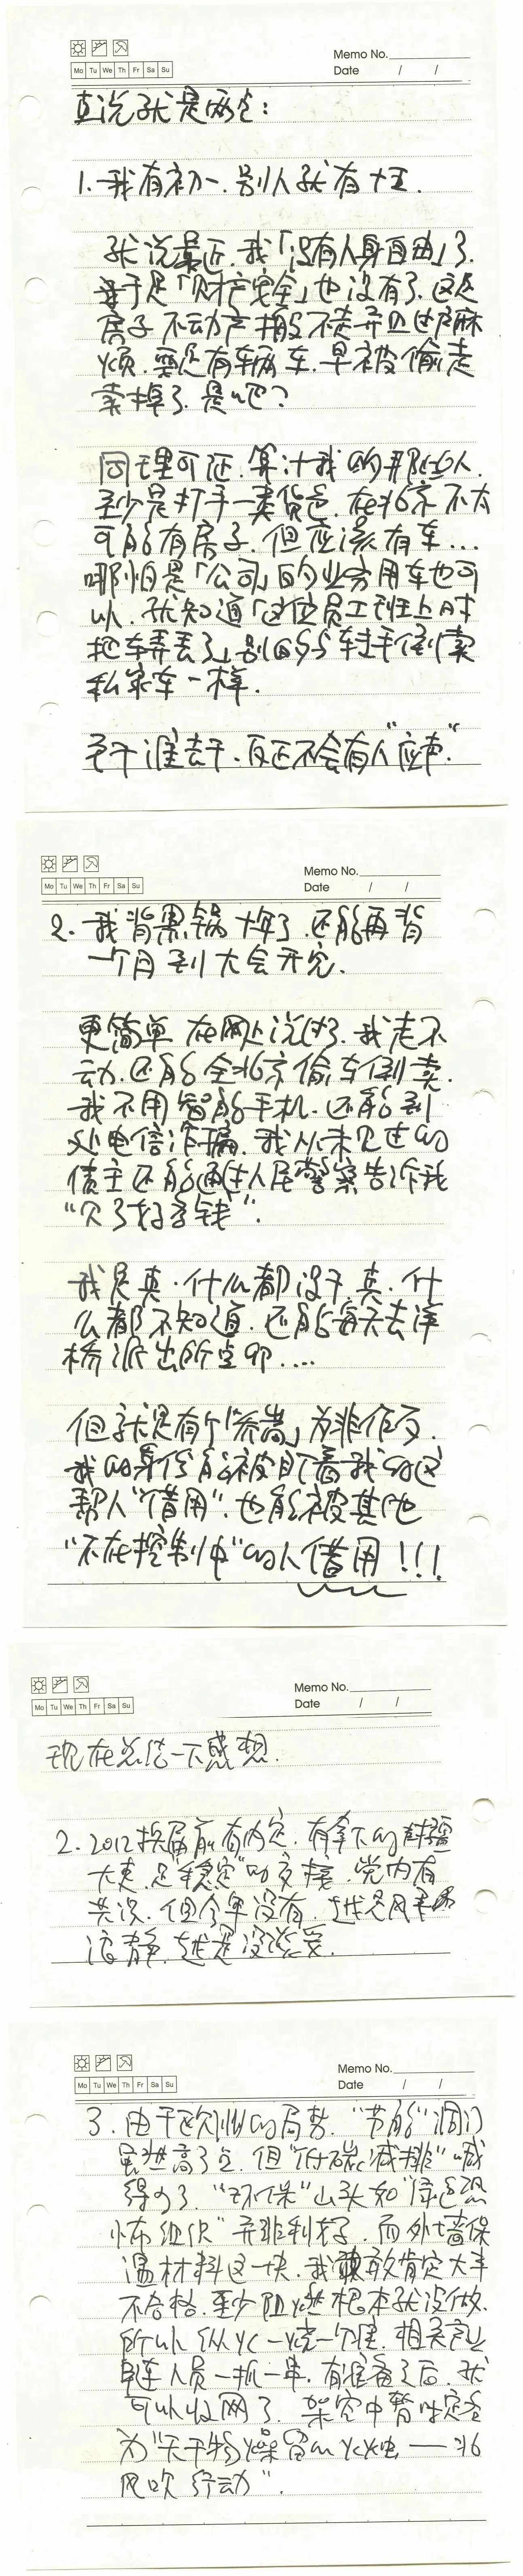 Memo No.
Mo Tu We Th Fr Sa Su
Date / /
直说就是两点:
1.我有初一.别人就有十五.
就说最近.我「没有人身自由」了.
等于是「财产安全」也没有了.这是
房子不动产搬不走弄且过户麻
烦.要是有辆车.早被偷走
卖掉了.是吧?
同理可证.算计我的那些人.
至少是打手一类货色.在北京不太
可能有房子.但应该有车...
哪怕是「公司」的业务用车也可
以.就知道「这位员工班上时
把车弄丢了」别的4S车过手倒卖
私家车一样.
至于谁去干.反正不会有人"应声".
Memo No.
Mo Tu We Th Fr Sa Su
Date / /
2.我背黑锅十年了.还能再背
一个月到大会开完.
更简单在网上说过了.我走不
动.还能全北京偷车倒卖.
我不用智能手机.还能到
处电信诈骗.我从未见过的
债主还能通过人民警察告诉我
"欠了好多钱".
我是真.什么都没干.真.什
么都不知道.还能每天去洋
桥派出所点卯....
但就是有个「系岗」为非作歹.
我的身份能被盯着我的这
帮人"借用".也能被其他
"不在控制中"的人借用!!!
Memo No.
Mo Tu We Th Fr Sa Su
Date / /
现在总结一下感想.
2.2012换届前有内定.有拿下的
大老.是"稳定"的交接.党内有
共识.但今年没有.越是风平
浪静.越是没谈妥.
Memo No.
Mo Tu We Th Fr Sa Su
Date / /
3.由于欧洲的局势."节能"调门
虽然高了点.但"低碳减排"喊
得少了."环保"山头如"绿色恐
怖组织"弄非利好.而外墙保
温材料这一块.我敢肯定大半
不合格.至少阻燃根本就没做.
所以纵火一烧一个准.相关产业
牵连人员一抓一串.有准备之后.就
可以收网了.架空中暂时定名
为"天干物燥留心火烛——北
风吹行动".